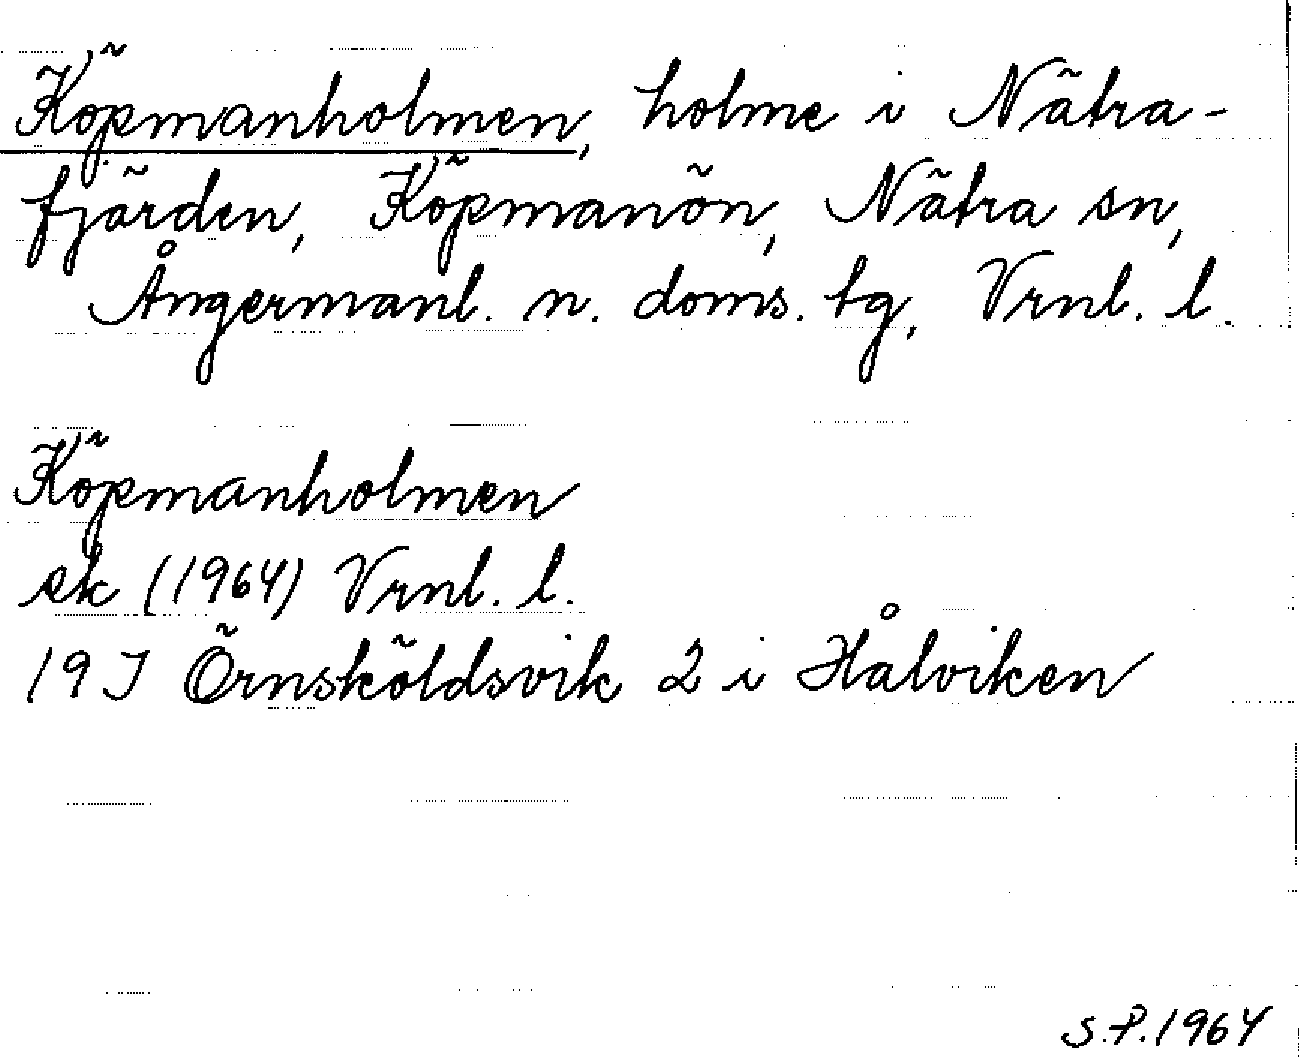 Köpmanholmen, holme i Nätra-
fjärden, Köpmanön, Nätra sn,
Ångermanl. n. doms. tg, Vrnl. l.
Köpmanholmen
ek (1964) Vrnl. l.
19 J Örnsköldsvik 2 i Hålviken
S.P. 1964